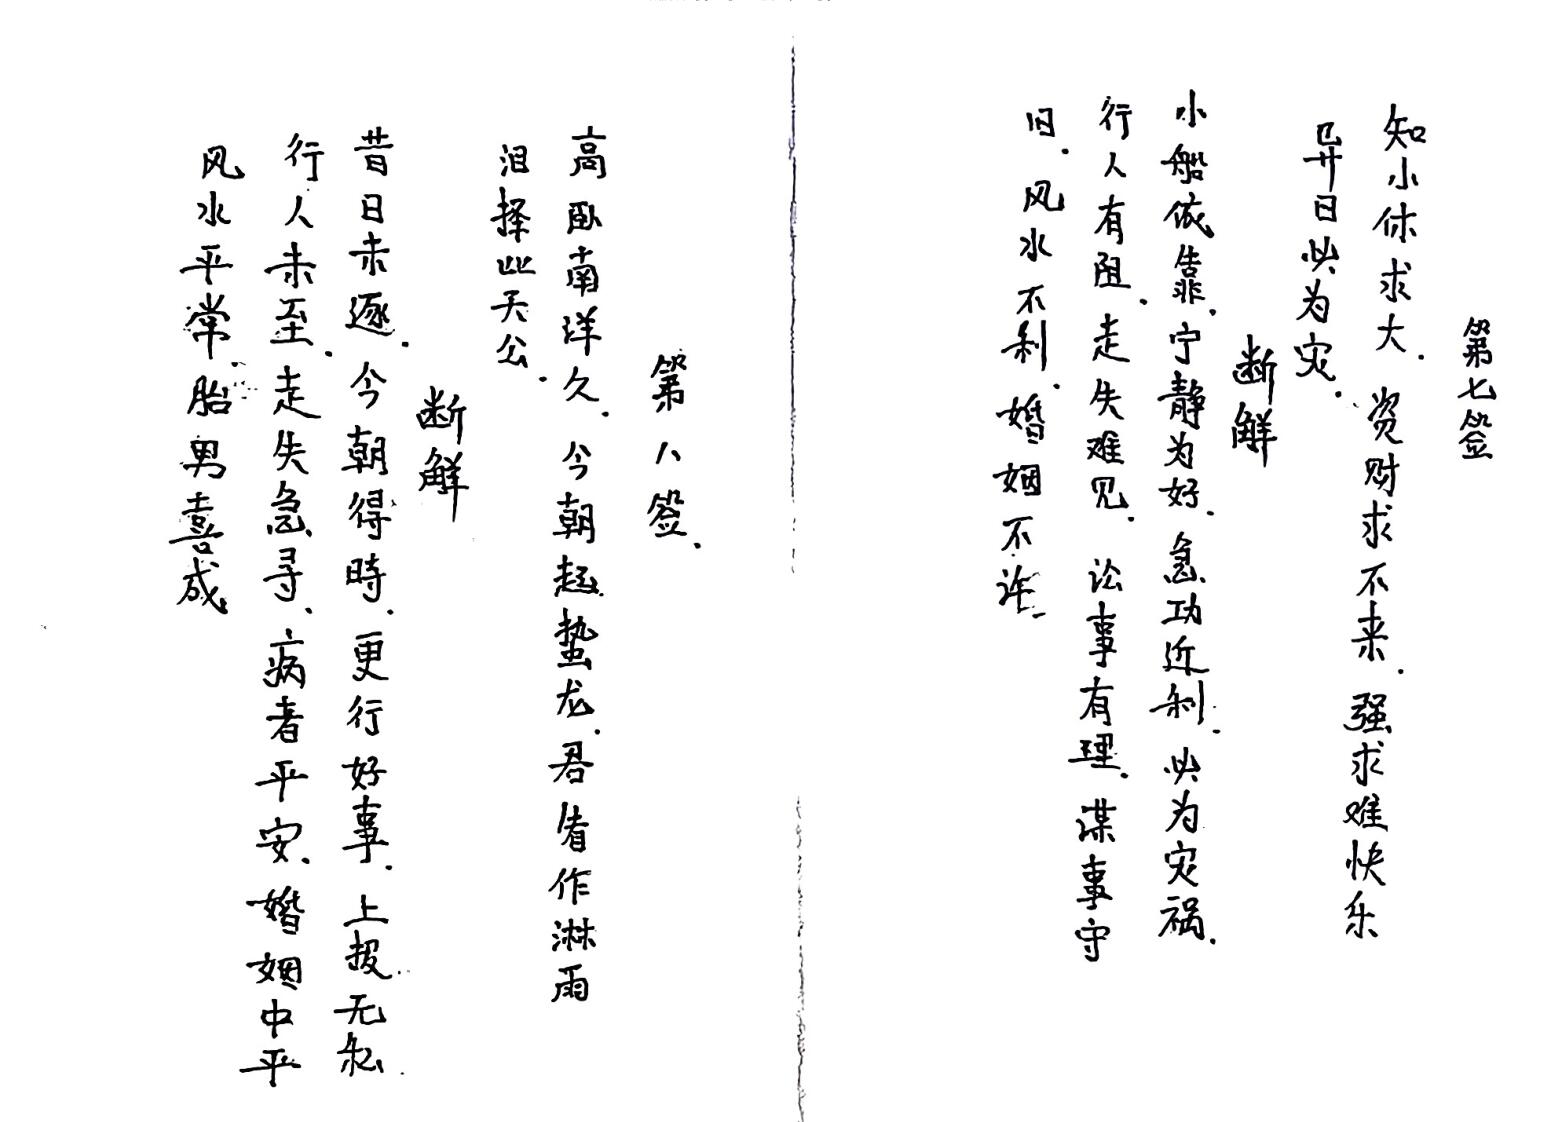 第七签
知小休求大.资财求不来.强求难快乐
异日必为灾.
断解
小船依靠.宁静为好.急功近利.必为灾祸.
行人有阻.走失难见.讼事有理.谋事守
旧.风水不利.婚姻不许.
第八签.
高卧南洋久.今朝起蛰龙.君看作淋雨
泪择此天公.
断解
昔日未逐.今朝得時.更行好事.上报无私.
行人未至.走失急寻、病者平安、婚姻中平
风水平常.胎男喜成